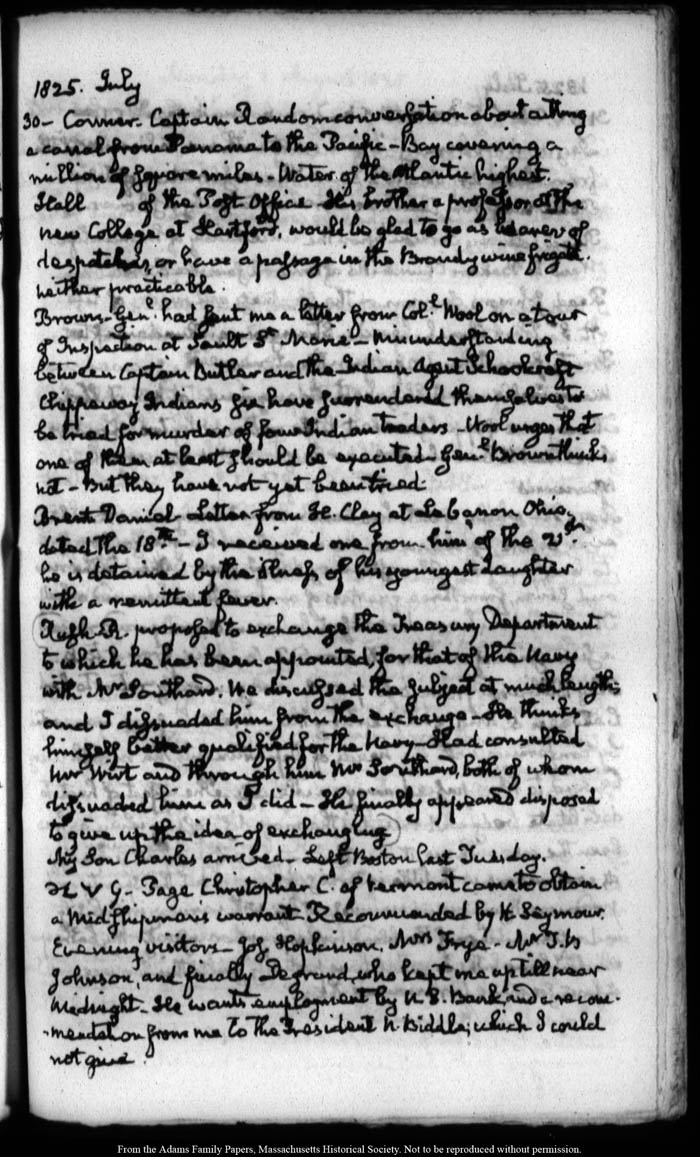 1825. July
30 – Conner. Captain Random conversation about cutting
a canal from Panama to the Pacific – Bay covering a
million of square miles – Water of the Atlantic highest.
Hall of the Post Office – His brother a professor at the
new College at Hartford, would be glad to go as bearer of
despatches, or have a passage in the Brandywine frigate.
neither practicable.
Brown – Genl had sent me a letter from Coll Wool on a tour
of Inspection at Sault St Marie – misunderstanding
between Captain Cutler and the Indian Agent Schoolcraft
Chippeway Indians six have surrendered themselves to
be tried for murder of four Indian traders – Wool urges that
one of them at least should be executed – Genl Brown thinks
not – But they have not yet been tried.
Brent Daniel – Letter from H. Clay at Lebanon Ohio,
dated the 18th – I received one from him of the
he is detained by the illness of his youngest daughter
with a remittent fever.
Rush R. proposed to exchange the Treasury Department
to which he has been appointed, for that of the Navy
with Mr Southard. We discussed the subject at much length
and I dissuaded him from the exchange – He thinks
himself better qualified for the Navy – Had consulted
Mr Wirt and through him Mr Southard, both of whom
dissuaded him as I did – He finally appeared disposed
to give up the idea of exchanging
My Son Charles arrived – Left Boston last Tuesday.
31. V G – Page Christopher C. of Vermont came to obtain
a Midshipman's warrant Recommended by H. Seymour.
Evening visitors – Jos. Hopkinson, Mrs Frye – Mr T. B
Johnson, and finally Degrand, who kept me up till near
Midnight – He wants employment by U.S. Bank, and a recom-
-mendation from me to the President N. Biddle; which I could
not give.
From the Adams Family Papers, Massachusetts Historical Society. Not to be reproduced without permission.